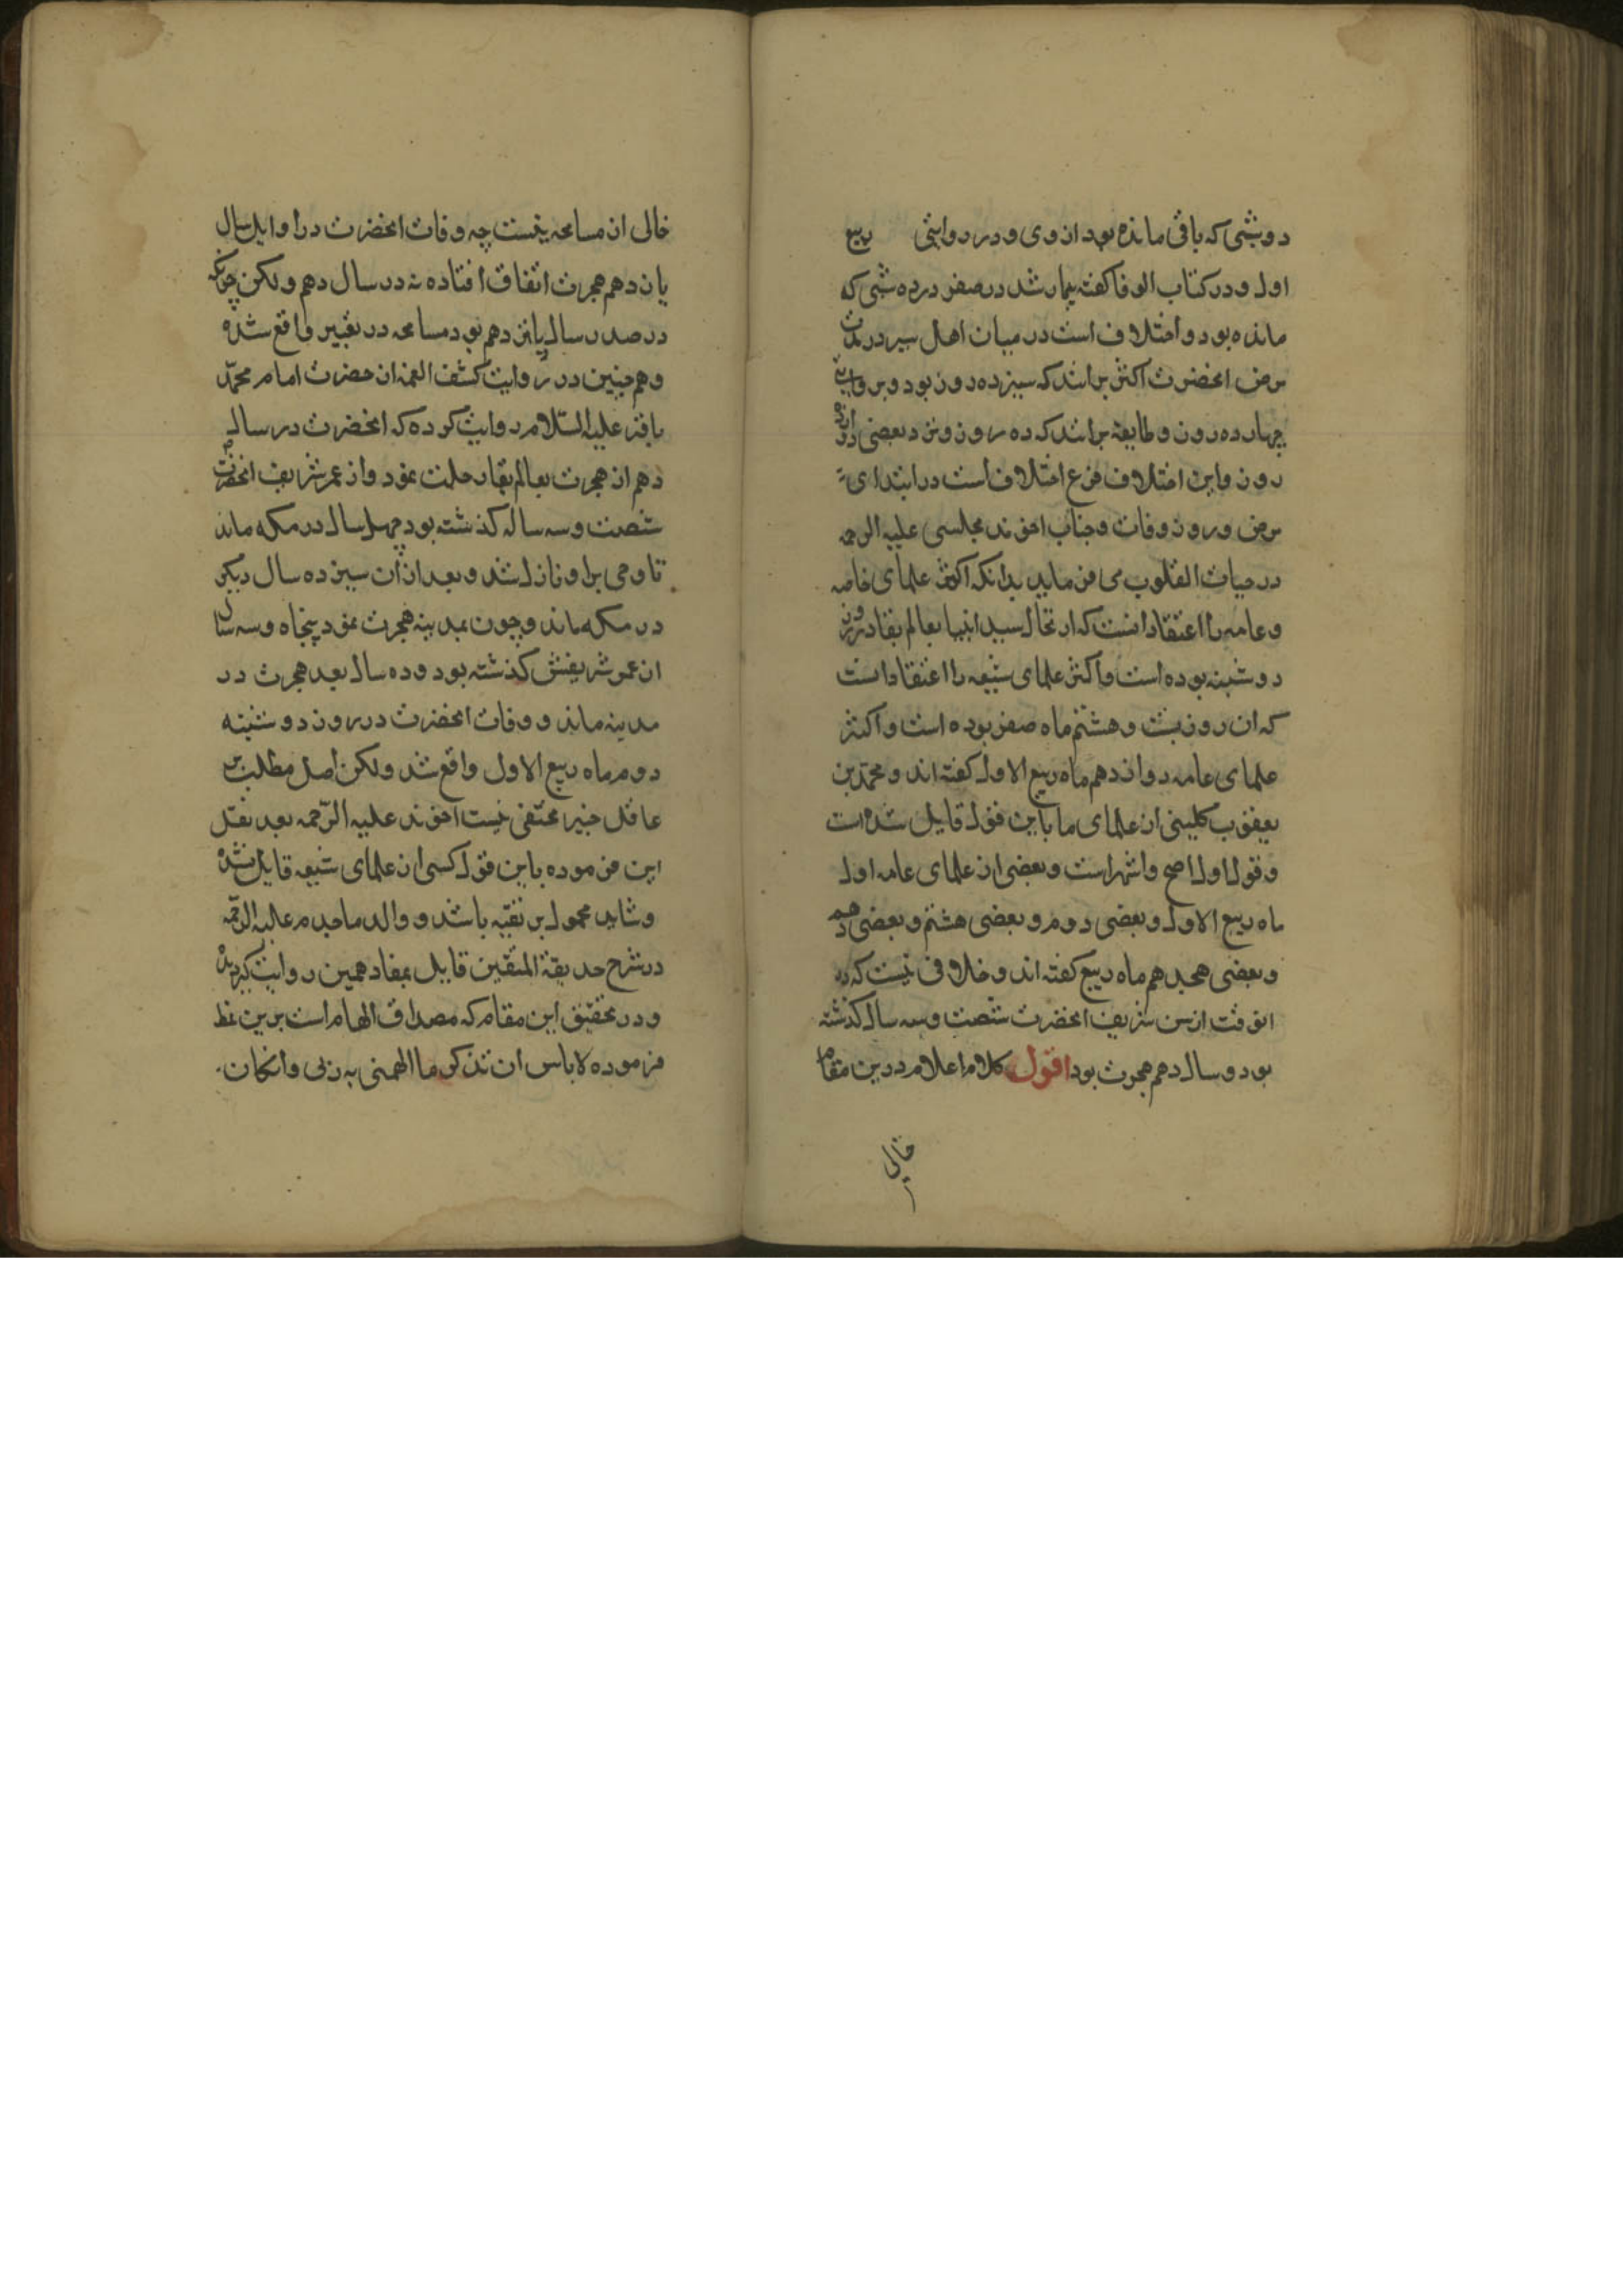 دو شبی که باقی مانده بود از وی و در روایتی ربیع
اول و در کتاب الوفا کفته بیمار شد در صفر در ده شبی که
مانده بود و اختلاف است در میان اهل سیر در مدت
مرض انحضرت اکثر برانند که سیزده روز بود و بروایت
چهارده روز و طایفه برانند که ده روز و نزد بعضی دوازده
روز و این اختلاف فرع اختلاف است در ابتدای
مرض و روز وفات و جناب اخوند مجلسی علیه الرحمه
در حیات القلوب می فرماید بدانکه اکثر علمای خاصه
و عامه را اعتقاد انست که ارتحال سید انبیا بعالم بقا در روز
دوشنبه بوده است و اکثر علمای شیعه را اعتقاد است
که ان روز بیست و هشتم ماه صفر بوده است و اکثر
علمای عامه دوازدهم ماه ربیع الاول کفته اند و محمد بن
یعقوب کلینی از علمای ما باین قول قایل شده است
و قول اول اصح و اشهر است و بعضی از علمای عامه اول
ماه ربیع الاول و بعضی دوم و بعضی هشتم و بعضی دهم
و بعضی هجدهم ماه ربیع کفته اند و خلافی نیست که در
انوقت از سن شریف انحضرت شصت و سه سال کذشته
بود و سال دهم هجرت بود اقول کلام اعلام درین مقام
خالی
خالی از مسامحه نیست چه وفات انحضرت در اوایل سال
یازدهم هجرت اتفاق افتاده نه در سال دهم و لکن چونکه
در صدر سال یازدهم بود مسامحه در تعبیر واقع شده
و هم چنین در روایت کشف الغمه از حضرت امام محمد
باقر علیه السلام روایت کرده که انحضرت در سال
دهم از هجرت بعالم بقا رحلت نمود و از عمر شریف انحضرت
شصت و سه سال کذشته بود چهل سال در مکه ماند
تا وحی بر او نازل شد و بعد از ان سیزده سال دیکر
در مکه ماند و چون بمدینه هجرت نمود پنجاه و سه سال
از عمر شریفش کذشته بود و ده سال بعد هجرت در
مدینه ماند و وفات انحضرت در روز دوشنبه
دوم ماه ربیع الاول واقع شد ولکن اصل مطلب بر
عاقل خبیر مختفی نیست اخوند علیه الرحمه بعد نقل
این فرموده باین قول کسی از علمای شیعه قایل نشده
و شاید محمول بر تقیه باشد و والد ماجدم علیه الرحمه
در شرح حدیقة المتقین قایل بمفاد همین روایت کردیده
و در تحقیق این مقام که مصداق الهام است برین نمط
فرموده لا باس ان نذکر ما الهمنی به ربی و ان کان